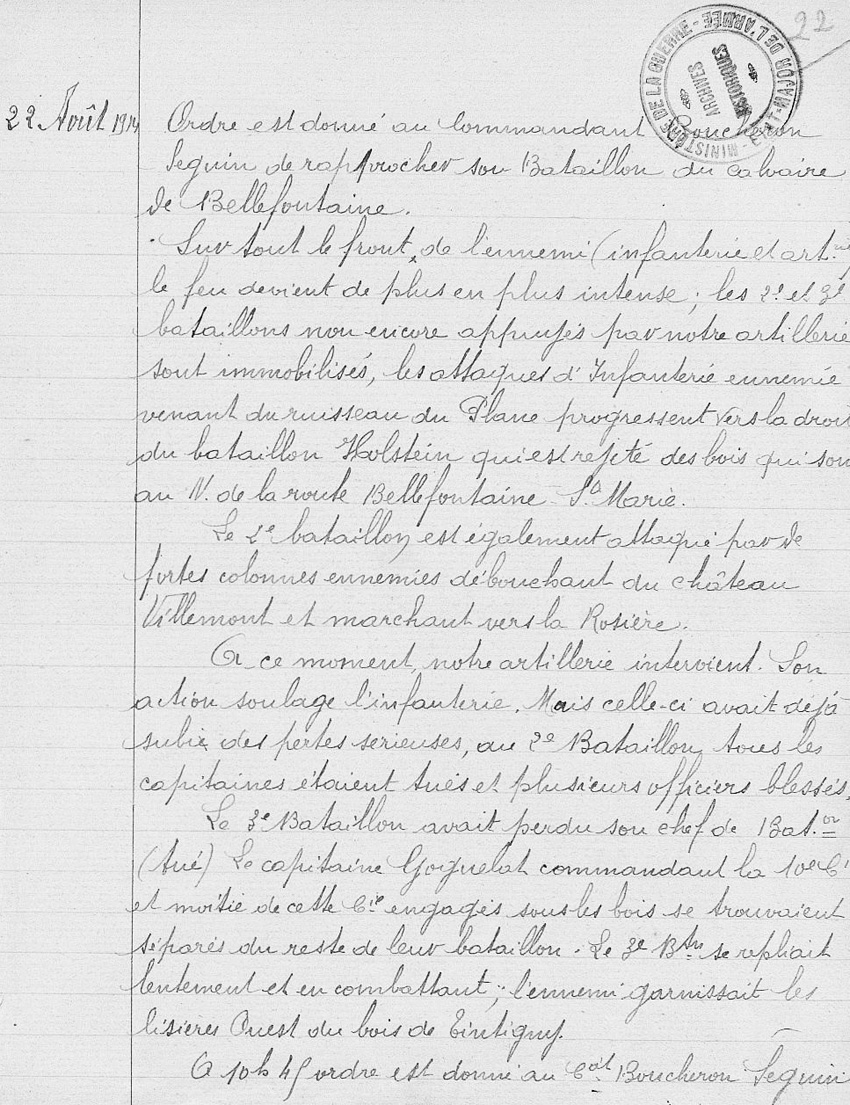 22
MINISTÈRE DE LA GUERRE - ÉTAT-MAJOR DE L'ARMÉE -
ARCHIVES HISTORIQUES
22 Août 1914
Ordre est donné au Commandant Boucheron
Seguin de rapprocher son Bataillon du calvaire
de Bellefontaine.
Sur tout le front, de l'ennemi (infanterie et art.rie
le feu devient de plus en plus intense ; les 2e et 3e
bataillons non encore appuyés par notre artillerie
sont immobilisés, les attaques d'Infanterie ennemie
venant du ruisseau du Plane progressent vers la droit
du bataillon Holstein qui est rejeté des bois qui son
au N. de la route Bellefontaine Sta Marie.
Le 2e bataillon est également attaqué par de
fortes colonnes ennemies débouchant du château
Villemont et marchant vers la Rosière.
A ce moment, notre artillerie intervient. Son
action soulage l'infanterie. Mais celle-ci avait déjà
subie des pertes serieuses, au 2e Bataillon, tous les
capitaines étaient tués et plusieurs officiers blessés,
Le 3e Bataillon avait perdu son chef de Bat.on
(tué) Le capitaine Goiguelat commandant la 10e C
et moitié de cette Cie engagés sous les bois se trouvaient
séparés du reste de leur bataillon. Le 3e Btn se repliait
lentement et en combattant ; l'ennemi garnissait les
lisières Ouest du bois de Tintigny.
A 10h 45 ordre est donné au Cdt Boucheron Seguin